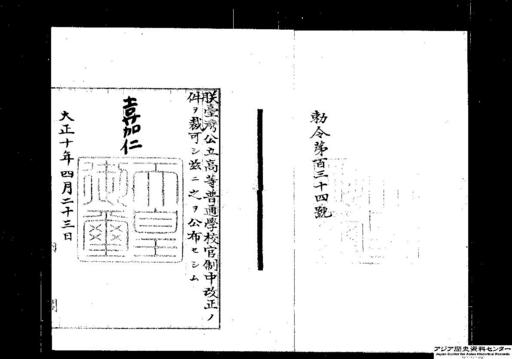 勅令第百三十四號
朕臺灣公立高等普通學校官制中改正ノ
件ヲ裁可シ茲ニ之ヲ公布セシム
嘉仁
天皇御璽
大正十年四月二十三日
アジア歴史資料センター
Japan Center for Asian Historical Records